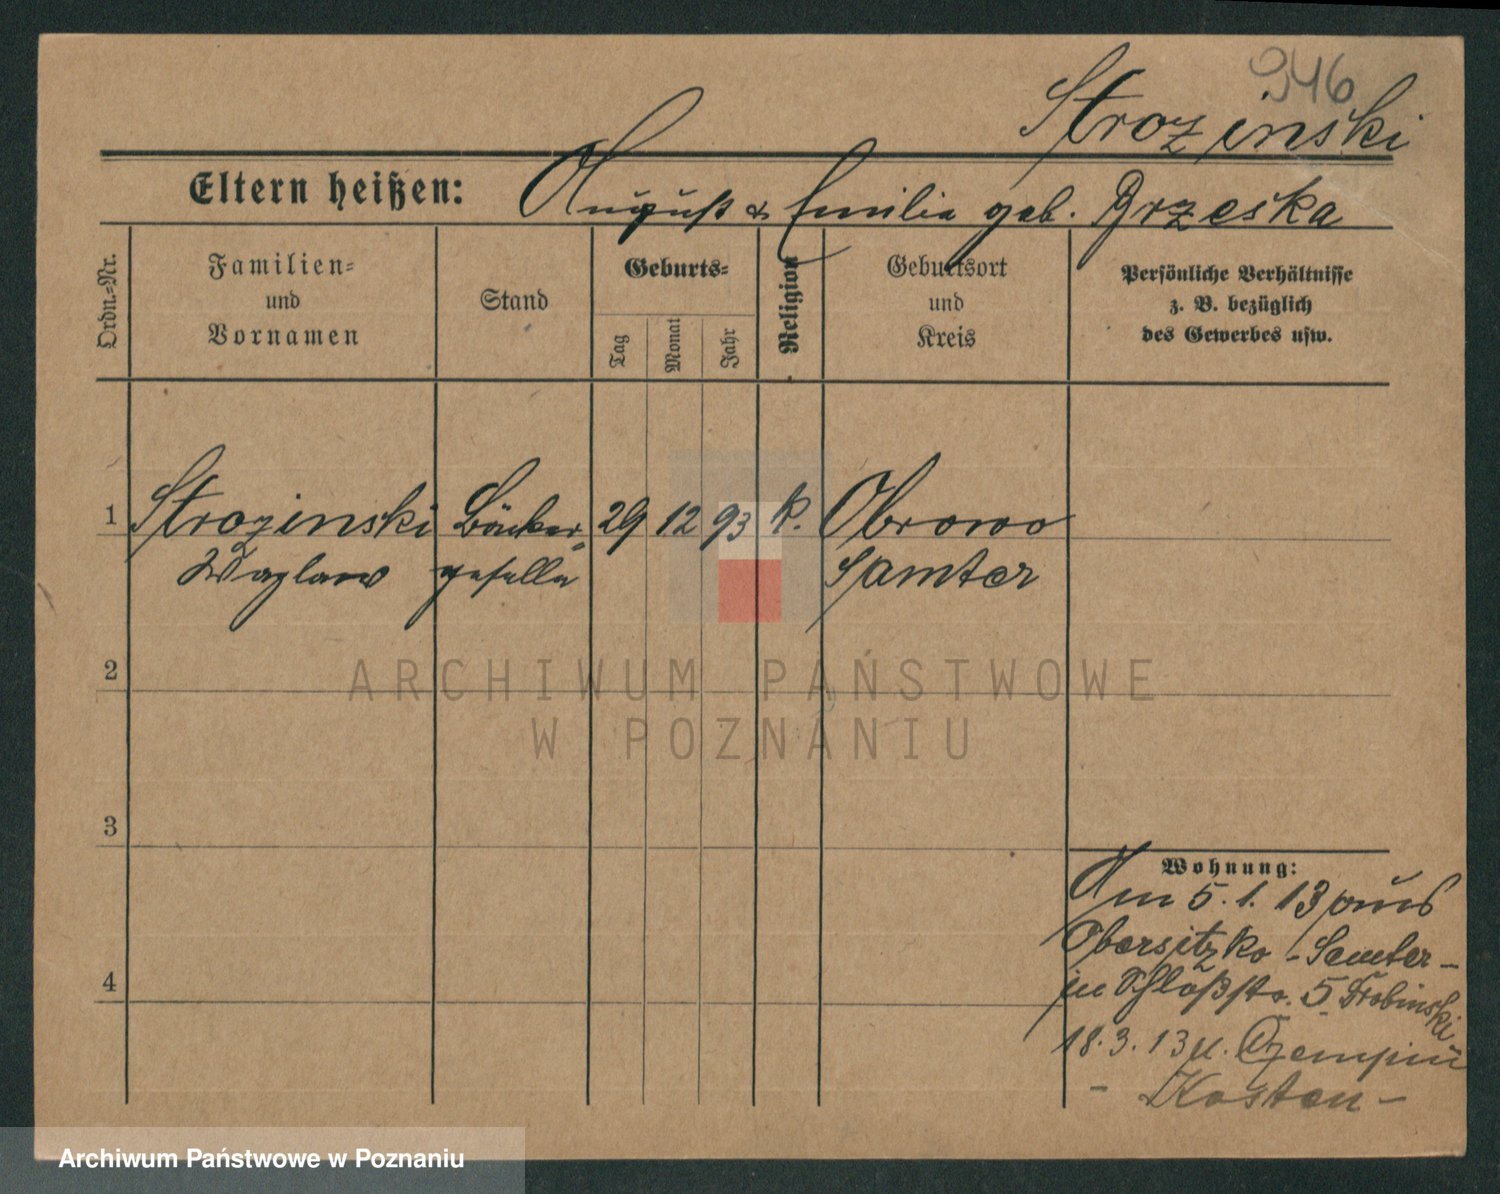 946
Strozinski
Eltern heißen: August & Emilia geb. Brzeska
Ordn.-Nr.
Familien-
und
Vornamen
Stand
Geburts-
Tag
Monat
Jahr
Religion
Geburtsort
und
Kreis
Persönliche Verhältnisse
z. B. bezüglich
des Gewerbes usw.
1 Strozinski Bäcker- 29 12 93 k. Obrowo
Wazlaw geselle Samter
2
3
4
Wohnung:
Am 5.1.13 aus
Obersitzko - Samter -
in Schloßstr. 5 Drobinski
18.3.13 n. Czempin
- Kosten -
ARCHIWUM PAŃSTWOWE
W POZNANIU
Archiwum Państwowe w Poznaniu